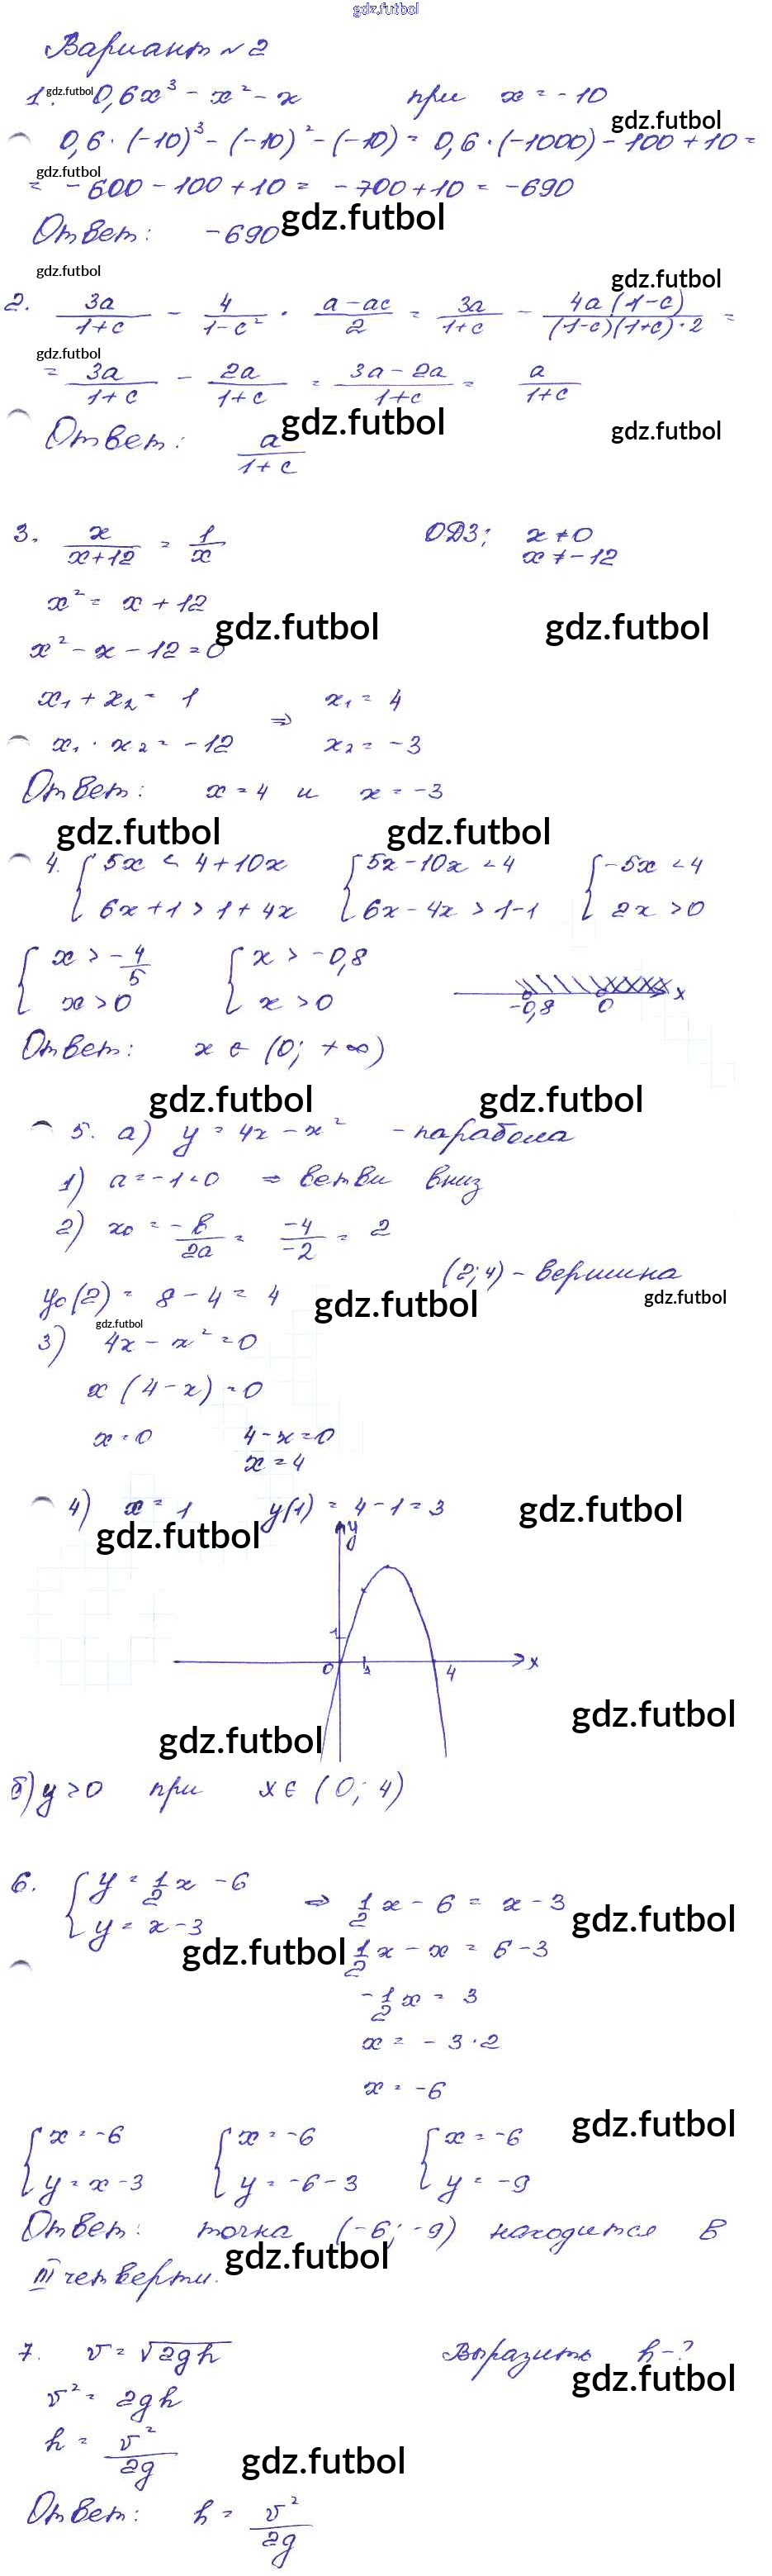 gdz.futbol
Вариант №2
1. gdz.futbol 0,6x³ - x² - x при x = -10
gdz.futbol
0,6 · (-10)³ - (-10)² - (-10) = 0,6 · (-1000) - 100 + 10 =
gdz.futbol
= -600 - 100 + 10 = -700 + 10 = -690
Ответ: -690 gdz.futbol
gdz.futbol gdz.futbol
2. 3a/(1+c) - 4/(1-c²) · (a-ac)/2 = 3a/(1+c) - 4a(1-c)/((1-c)(1+c)·2) =
gdz.futbol
= 3a/(1+c) - 2a/(1+c) = (3a-2a)/(1+c) = a/(1+c)
Ответ: a/(1+c) gdz.futbol gdz.futbol
3. x/(x+12) = 1/x ОДЗ; x ≠ 0
x ≠ -12
x² = x + 12
gdz.futbol gdz.futbol
x² - x - 12 = 0
x₁ + x₂ = 1 ⇒ x₁ = 4
x₁ · x₂ = -12 x₂ = -3
Ответ: x = 4 и x = -3
gdz.futbol gdz.futbol
4. { 5x < 4 + 10x { 5x - 10x < 4 { -5x < 4
6x + 1 > 1 + 4x 6x - 4x > 1-1 2x > 0
{ x > -4/5 { x > -0,8
x > 0 x > 0
-0,8 0 x
Ответ: x ∈ (0; +∞)
gdz.futbol gdz.futbol
5. а) y = 4x - x² - парабола
1) a = -1 < 0 ⇒ ветви вниз
2) x₀ = -b/2a = -4/-2 = 2
(2; 4) - вершина
y₀(2) = 8 - 4 = 4 gdz.futbol gdz.futbol
gdz.futbol
3) 4x - x² = 0
x (4 - x) = 0
x = 0 4 - x = 0
x = 4
4) x = 1 y(1) = 4 - 1 = 3 gdz.futbol
gdz.futbol y
1
0 1 4 x
gdz.futbol
gdz.futbol
б) y > 0 при x ∈ (0; 4)
6. { y = 1/2 x - 6 ⇒ 1/2 x - 6 = x - 3 gdz.futbol
y = x - 3
gdz.futbol 1/2 x - x = 6 - 3
-1/2 x = 3
x = -3 · 2
x = -6
gdz.futbol
{ x = -6 { x = -6 { x = -6
y = x - 3 y = -6 - 3 y = -9
Ответ: точка (-6; -9) находится в
gdz.futbol
III четверти.
7. v = √2gh Выразить h - ?
gdz.futbol
v² = 2gh
h = v²/2g
gdz.futbol
Ответ: h = v²/2g